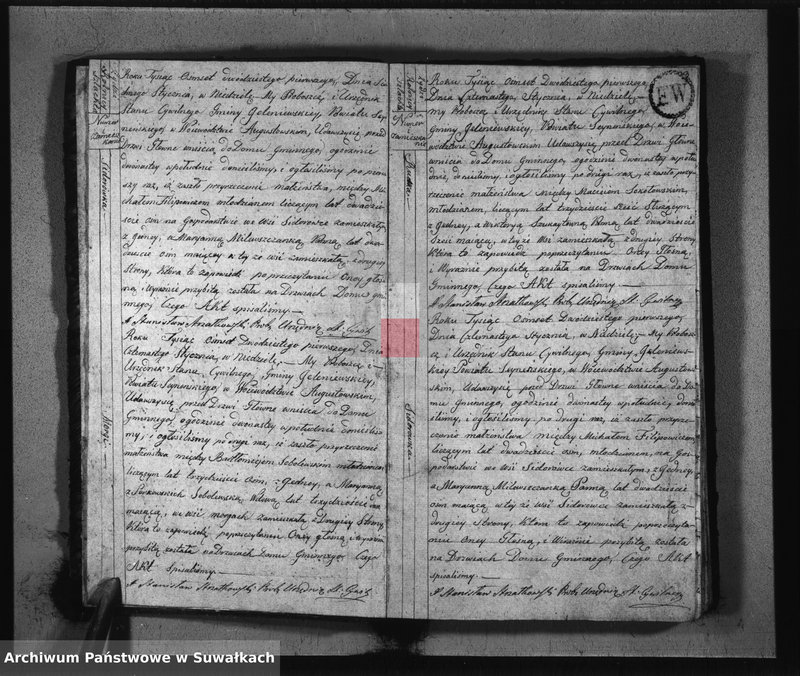 Roku Tysiąc Osmset dwudziestego pierwszego, Dnia
Stycznia, w Niedzielę, My Proboszcz i Urzędnik
Stanu Cywilnego Gminy Jeleniewskiey, Powiatu Sey-
neńskiego, w Woiewodztwie Augustowskim, Udawszy się przed
Drzwi Głowne wniscia do Domu Gminnego, ogodzinie
dwunastey wpołudnie donieśliśmy, i ogłosiliśmy po pierw-
szy raz, iż zaszło przyrzeczenie małżeństwa, między Mi-
chałem Filipowiczem młodzianem liczącym lat dwadzie-
ścia osm na Gospodarstwie we Wsi Sidorowce zamieszkałym
z iedney, a Maryanną Milewszczanką Panną lat dwa-
dzieścia osm maiącey w tey że wsi zamieszkałą zdrugiey
Strony, Ktora to zapowiedź po przeczytaniu Oney głoś-
no, i Wyraźnie przybitą została na Drzwiach Domu gmi-
nnego, Czego Akt spisaliśmy. —
Roku Tysiąc Osmset Dwudziestego pierwszego, Dnia
Czternastego Stycznia, w Niedzielę — My Proboszcz i
Urzędnik Stanu Cywilnego, Gminy Jeleniewskiey,
Powiatu Seyneńskiego, w Woiewodztwie Augustowskim,
Udawszy się przed Drzwi Głowne wniscia do Domu
Gminnego, ogodzinie dwunastey wpołudnie donieśliś-
my, i ogłosiliśmy po drugi raz, iż zaszło przyrzeczenie
małżeństwa między Bartłomiejem Sobolewskim młodzianem
liczącym lat trzydzieści osm, z iedney, a Maryanną
z Sobolewską Wdową lat trzydzieści
maiącą, we wsi zamieszkałą z Drugiey Strony
Ktora to zapowiedź poprzeczytaniu Oney głośno i wyraźnie
przybitą została na Drzwiach Domu Gminnego Czego
Akt spisaliśmy. —
Roku Tysiąc Osmset Dwudziestego pierwszego
Dnia Czternastego, Stycznia, w Niedzielę —
my Proboszcz, i Urzędnik Stanu Cywilnego,
Gminy Jeleniewskiey, Powiatu Seyneńskiego, w Woie-
wodztwie Augustowskim Udawszy się przed Drzwi Głowne
wniscia do Domu Gminnego, ogodzinie dwunastey wpołu-
dnie, donieśliśmy, i ogłosiliśmy po drugi raz, iż zaszło przy-
rzeczenie małżeństwa między Maciem Sokołowskim,
młodzianem, liczącym lat trzydzieście sześć Służącym
z iedney, a Wiktoryą Panną lat dwadzieścia
sześć maiącą, w tey że Wsi zamieszkałą zdrugiey Strony,
Ktora to zapowiedź poprzeczytaniu Oney Głośno,
i Wyraźnie przybitą została na Drzwiach Domu
Gminnego, Czego Akt spisaliśmy. —
Roku Tysiąc Osmset Dwudziestego pierwszego,
Dnia Czternastego Stycznia, w Niedzielę — My Probosz-
cz i Urzędnik Stanu Cywilnego, Gminy Jeleniew-
skiey Powiatu Seyneńskiego, w Woiewodztwie Augustow-
skim, Udawszy się przed Drzwi Głowne wniscia do Do-
mu Gminnego, ogodzinie dwunastey wpołudnie, donie-
śliśmy, i ogłosiliśmy na drugi raz, iż zaszło przyrze-
czenie małżeństwa między Michałem Filipowiczem,
liczącym lat dwadzieścia osm, młodzianem, na Gos-
podarstwie we Wsi Sidorowce zamieszkałym, z iedney,
a Maryanną Milewszczanką Panną lat dwadzieścia
osm maiącą w tey że Wsi Sidorowce zamieszkałą z
drugiey Strony, Ktora to zapowiedź poprzeczyta-
niu Oney Głośno, i Wyraźnie przybitą została
na Drzwiach Domu Gminnego, Czego Akt
spisaliśmy. —
EW
Archiwum Państwowe w Suwałkach